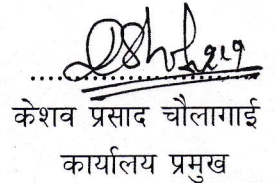 केशव प्रसाद चौलागाई
कार्यालय प्रमुख